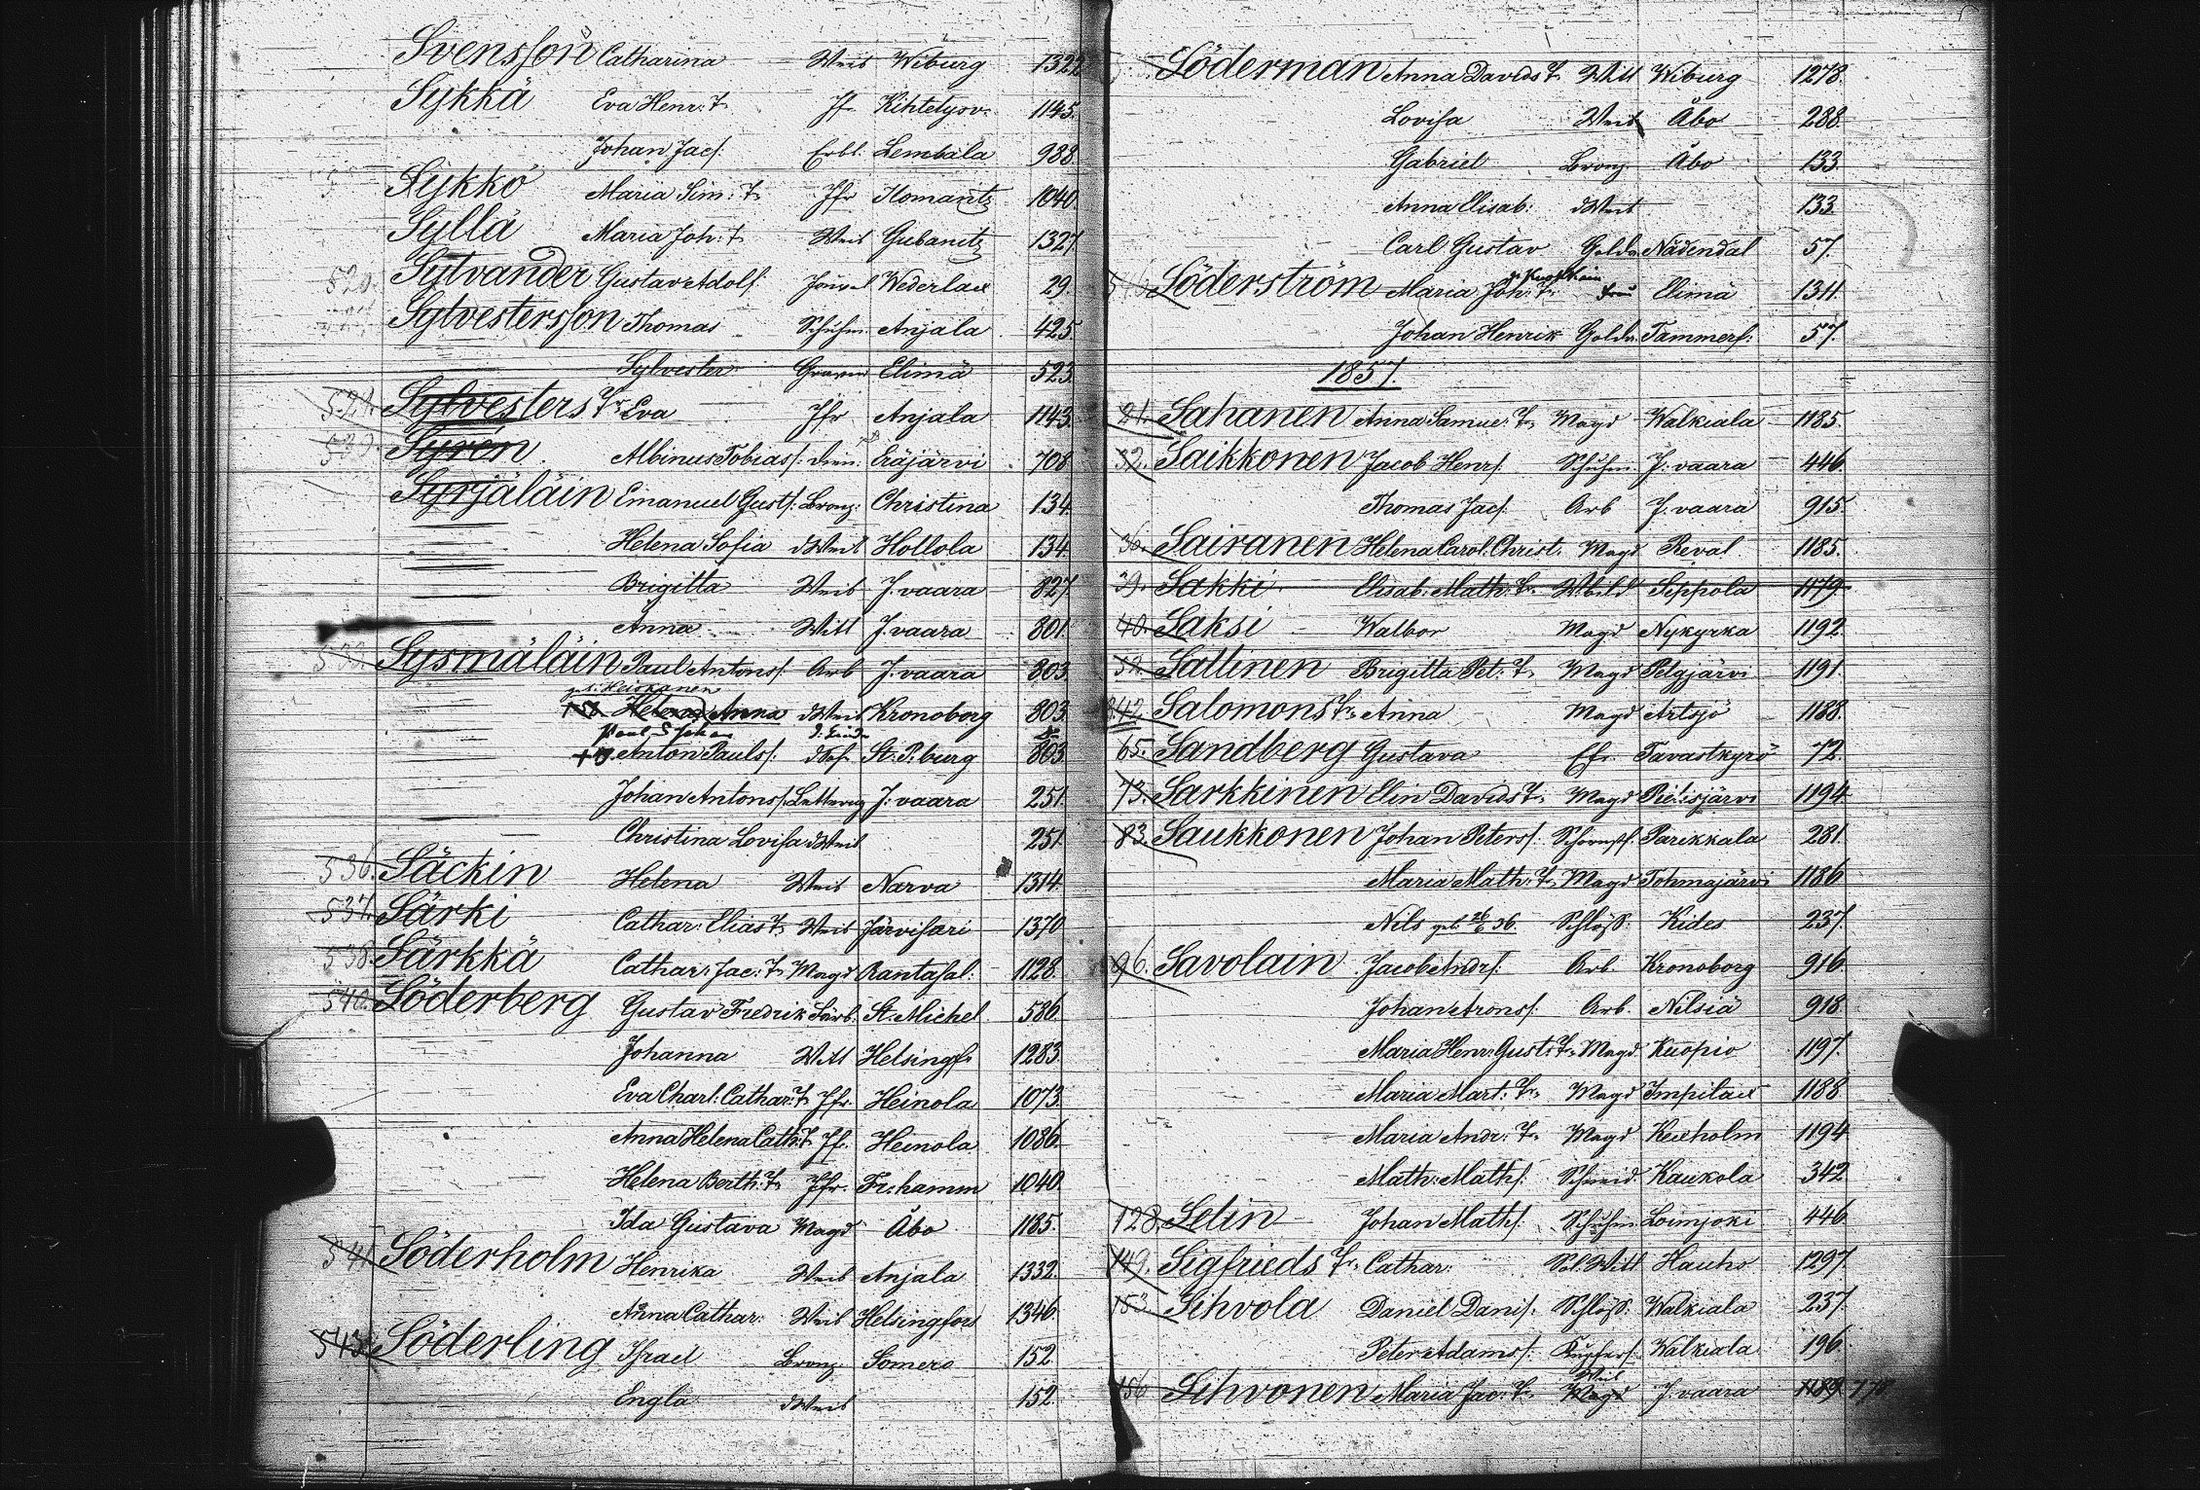 Svensson Catharina Weib Wiburg 1322
Sykkä Eva Henr: Tr Jfr Kihtelysv: 1145.
Johan Jacs. Erbl. Lembala 988
Sykkö Maria Sim: Tr Jfr Ilomantz 1040
Syllä Maria Joh: Tr Weib Gubanitz 1327.
Sylvander Gustav Adolf Wederlax 29.
Sylvestersson Thomas Schuhm. Anjala 425.
Sylvester Elimä 523.
529. Sylvesters Tr Eva Jfr Anjala 1143.
Syrén Albinus Tobiass: Eräjärvi 708
Syrjäläin Emanuel Gusts: Bronz: Christina 134.
Helena Sofia dWeib Hollola 134.
Brigitta Weib J: vaara 827.
Anna Witt J: vaara 801.
533. Sysmäläin Paul Antons: Arb J: vaara 803.
geb: Heiskanen
Helena Anna dWeib Kronoborg 803.
Anton Pauls: St. P: burg 803.
Johan Antons: J: vaara 251.
Christina Lovisa dWeib 251.
536. Säckin Helena Weib Narva 1314.
537. Särki Cathar: Elias Tr Weib Järvisari 1370
538. Särkkä Cathar: Jac: Tr Magd Rantasal: 1128.
540. Söderberg Gustav Fredrik St. Michel 586.
Johanna Witt Helsingfs 1283.
Eva Charl: Cathar: Tr Jfr. Heinola 1073.
Anna Helena Cath: Tr Jfr. Heinola 1086.
Helena Berth: Tr Jfr. Fr: hamm 1040.
Ida Gustava Magd Åbo 1185.
541. Söderholm Henrika Weib Anjala 1332.
Anna Cathar: Weib Helsingfors 1346.
543. Söderling Israel Bronz. Somero 152
Engla dWeib 152.
Söderman Anna Davids Tr Witt Wiburg 1278.
Lovisa Weib Åbo 288.
Gabriel Bronz. Åbo 133.
Anna Elisab: dWeib 133.
Carl Gustav Golda. Nådendal 57.
Söderström Maria Joh: Tr Frau Elimä 1311.
Johan Henrik Golda. Tammerf: 57.
1857.
21. Sahanen Anna Samue: Tr Magd Walkiala 1185.
32. Saikkonen Jacob Henrs. Schuhm. J: vaara 446.
Thomas Jacs. Arb J: vaara 915.
36. Sairanen Helena Carol: Christ. Magd Reval 1185.
39. Sakki Elisab: Math: Tr Sippola 1179
40. Saksi Walbor Magd Nykyrka 1192.
Sallinen Brigitta Pet: Tr Magd Pelgjärvi 1191.
42. Salomons Tr Anna Magd Artsjö 1188.
65. Sandberg Gustava Efr. Tavastkyrö 72.
73. Sarkkinen Elin Davids Tr Magd Piel:sjärvi 1194
83. Saukkonen Johan Peters: Schornst. Parikkala 281.
Maria Math: Tr Magd Tohmajärvi 1186.
Nils geb. 26/5 36. Schlöß: Kides 237.
96. Savolain Jacob Andrs: Arb. Kronoborg 916.
Johan Arons: Arb. Nilsiä 918.
Maria Henr: Gust: Tr Magd Kuopio 1197.
Maria Mart: Tr Magd Impilax 1188
Maria Andr: Tr Magd Kexholm 1194
Math: Maths: Schmid Kaukola 342
128. Selin Johan Maths. Schuhm Loimjoki 446
149. Sigfrieds Tr Cathar: Sol. Witt Hauho 1297.
153. Sihvola Daniel Danis: Schlöß: Walkiala 237.
Peter Adams: Kupfers: Walkiala 196.
Weib
156. Sihvonen Maria Jac: Tr Magd J: vaara 1189.